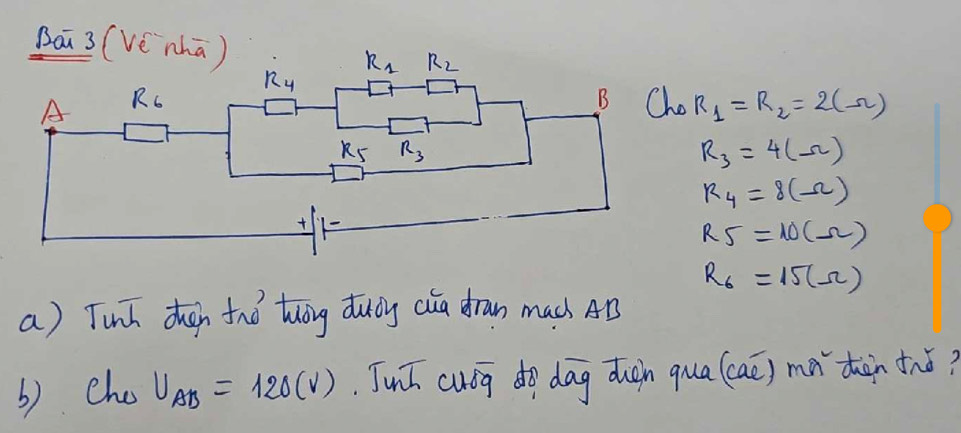 Bài 3 (Về nhà)
R1 R2
R4
A R6 B
R5 R3
+ -
Cho R1 = R2 = 2(Ω)
R3 = 4(Ω)
R4 = 8(Ω)
R5 = 10(Ω)
R6 = 15(Ω)
a) Tính điện trở tương đương của đoạn mạch AB
b) Cho UAB = 120(V). Tính cường độ dòng điện qua (các) mỗi điện trở?